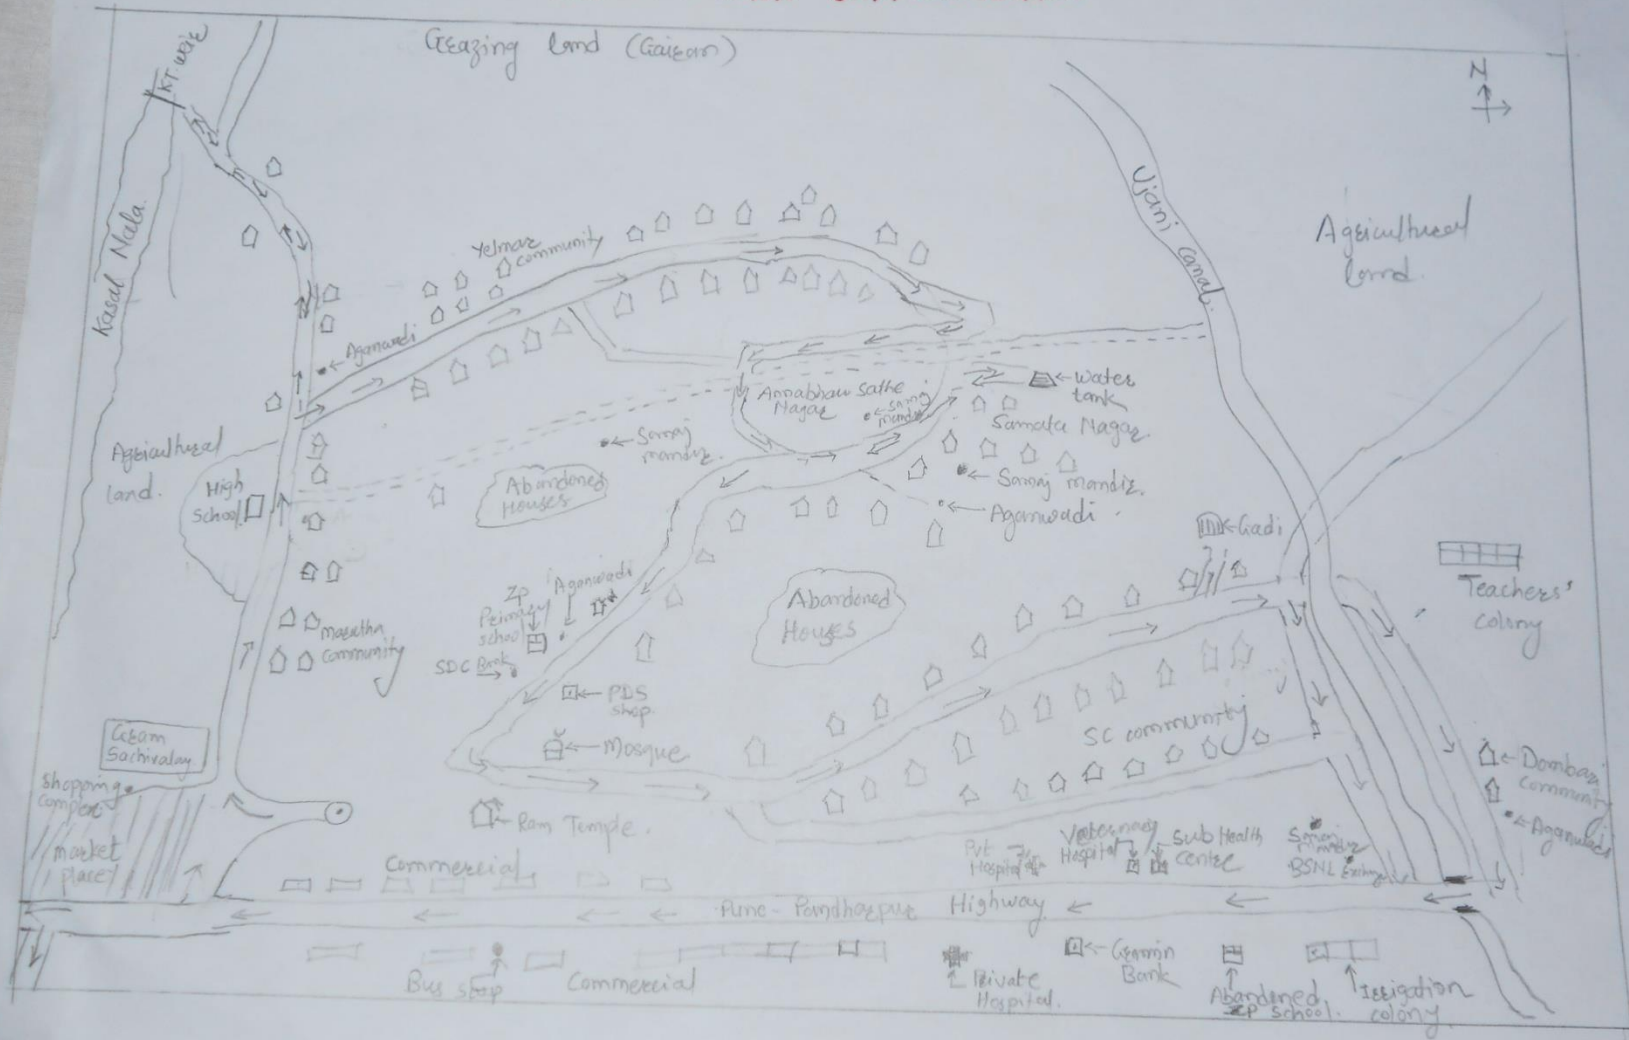 Grazing land (Gairan)
N
KT weir
Kasal Nala
Ujani Canal
Agricultural
land.
Yelmar
community
Aganwadi
Agricultural
land.
High
School
Annabhau Sathe
Nagar
Samaj
mandir
Water
tank
Samata Nagar
Samaj
mandir
Abandoned
Houses
Samaj mandir
Aganwadi
Gadi
Teachers'
colony
Maratha
community
ZP
Primary
school
Aganwadi
SDC Bank
Abandoned
Houses
PDS
shop
Mosque
SC community
Gram
Sachivalay
Shopping
complex
market
place
Ram Temple.
Dombari
community
Aganwadi
Commercial
Pvt
Hospital
Veternary
Hospital
Sub Health
centre
Samaj
mandir
BSNL
Pune - Pandharpur Highway
Bus stop
Commercial
Private
Hospital.
Gramin
Bank
Abandoned
ZP School.
Irrigation
colony